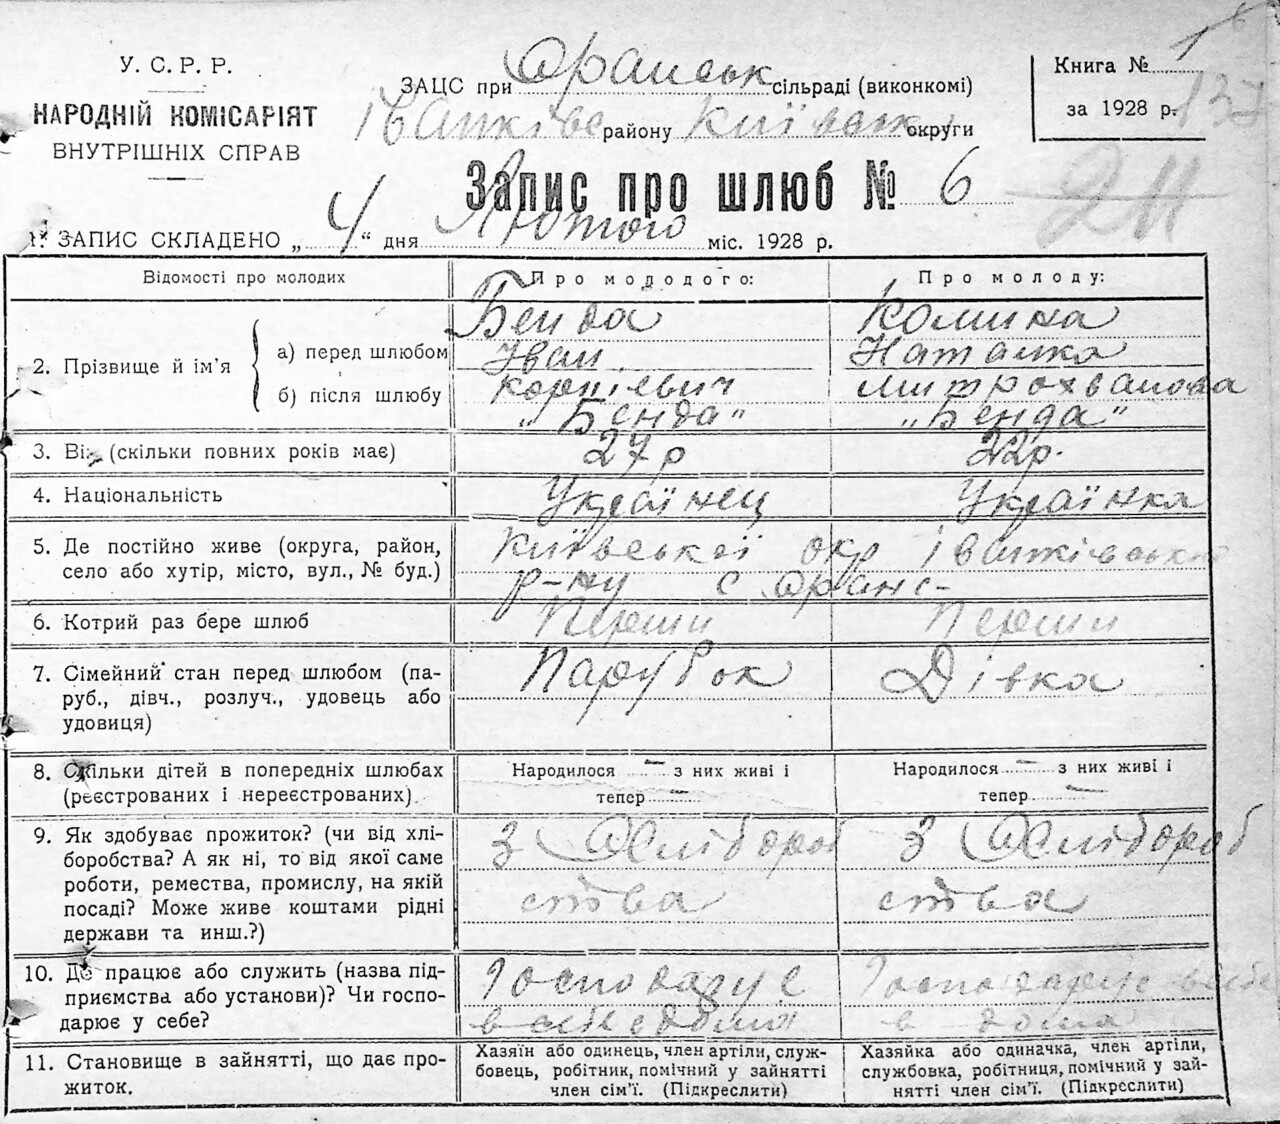 У. С. Р. Р.
НАРОДНІЙ КОМІСАРІЯТ
ВНУТРІШНІХ СПРАВ
ЗАЦС при Оранськ сільраді (виконкомі)
району округи
Книга № 1
за 1928 р. 137
Запис про шлюб № 6
211
1. ЗАПИС СКЛАДЕНО „ 4 “ дня Лютого міс. 1928 р.
Відомості про молодих
Про молодого:
Про молоду:
2. Прізвище й ім'я
а) перед шлюбом
б) після шлюбу
Бенда
Іван
Корнієвич
„Бенда"
Комина
Наталка
Митрохванова
„Бенда"
3. Вік (скільки повних років має)
27 р
22 р.
4. Національність
Українец
Українка
5. Де постійно живе (округа, район,
село або хутір, місто, вул., № буд.)
Київської окр Іванківсько
р-ну с Оранс-
6. Котрий раз бере шлюб
Перши
Перши
7. Сімейний стан перед шлюбом (па-
руб., дівч., розлуч., удовець або
удовиця)
Парубок
Дівка
8. Скільки дітей в попередніх шлюбах
(реєстрованих і нереєстрованих).
Народилося — з них живі і
тепер —
Народилося — з них живі і
тепер —
9. Як здобуває прожиток? (чи від хлі-
боробства? А як ні, то від якої саме
роботи, ремества, промислу, на якій
посаді? Може живе коштами рідні
держави та инш.?)
З Хлібороб
ства
З Хлібороб
ства
10. Де працює або служить (назва під-
приємства або установи)? Чи госпо-
дарює у себе?
Господарує
11. Становище в зайнятті, що дає про-
житок.
Хазяїн або одинець, член артіли, служ-
бовець, робітник, помічний у зайнятті
член сім'ї. (Підкреслити)
Хазяйка або одиначка, член артіли,
службовка, робітниця, помічний у зай-
нятті член сім'ї. (Підкреслити)